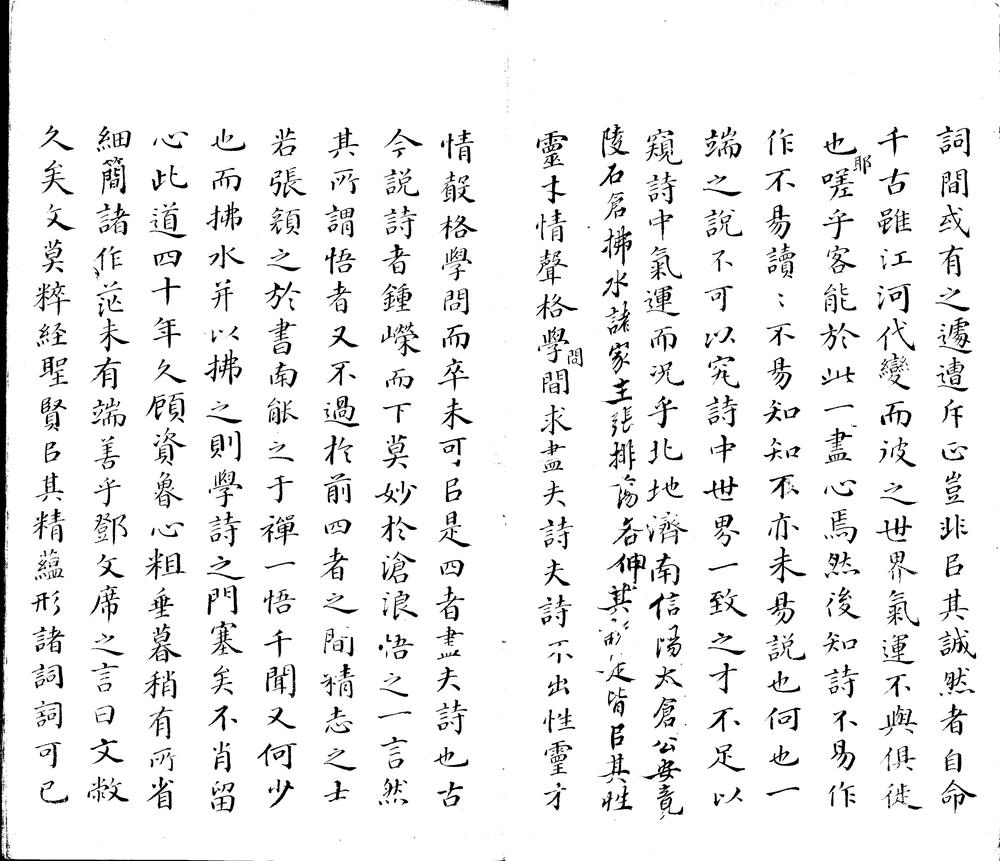 詞間或有之遽遭斥正豈非㠯其誠然者自命
千古雖江河代變而彼之世界氣運不與俱徙
也耶嗟乎客能於此一盡心焉然後知詩不易作
作不易讀〻不易知知不亦未易説也何也一
端之説不可以究詩中世界一致之才不足以
窺詩中氣運而况乎北地濟南信陽太倉公安竟
陵石倉拂水諸家主張排蕩各伸其所近皆㠯其性
靈才情聲格學問間求盡夫詩夫詩不出性靈才
情聲格學問而卒未可㠯是四者盡夫詩也古
今説詩者鍾嶸而下莫妙於滄浪悟之一言然
其所謂悟者又不過於前四者之間精志之士
若張顛之於書南能之于禪一悟千聞又何少
也而拂水并以拂之則學詩之門塞矣不肖留
心此道四十年久顧資魯心粗垂暮稍有所省
細簡諸作茫未有端善乎鄧文席之言曰文敝
久矣文莫粹経聖賢㠯其精蘊形諸詞詞可已